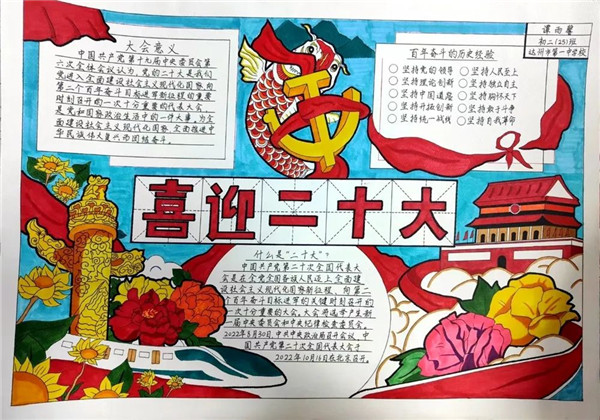 谭雨馨
初二(25)班
达州市第一中学校
大会意义
中国共产党第十九届中央委员会第
六次全体会议认为，党的二十大是我们
党进入全面建设社会主义现代化国家向
第二个百年奋斗目标进军新征程的重要
时刻召开的一次十分重要的代表大会，
是党和国家政治生活中的一件大事，为全
面建设社会主义现代化国家全面推进中
华民族伟大复兴而团结奋斗。
百年奋斗的历史经验
坚持党的领导 坚持人民至上
坚持理论创新 坚持独立自主
坚持中国道路 坚持胸怀天下
坚持开拓创新 坚持敢于斗争
坚持统一战线 坚持自我革命
喜迎二十大
什么是“二十大”？
中国共产党第二十次全国代表大
会是在全党全国各族人民迈上全面建
设社会主义现代化国家新征程、向第二
个百年奋斗目标进军的关键时刻召开的
一次十分重要的大会。大会将选举产生新
一届中央委员会和中央纪律检查委员会。
2022年8月30日，中共中央政治局召开会议，中
国共产党第二十次全国代表大会于
2022年10月16日在北京召开。